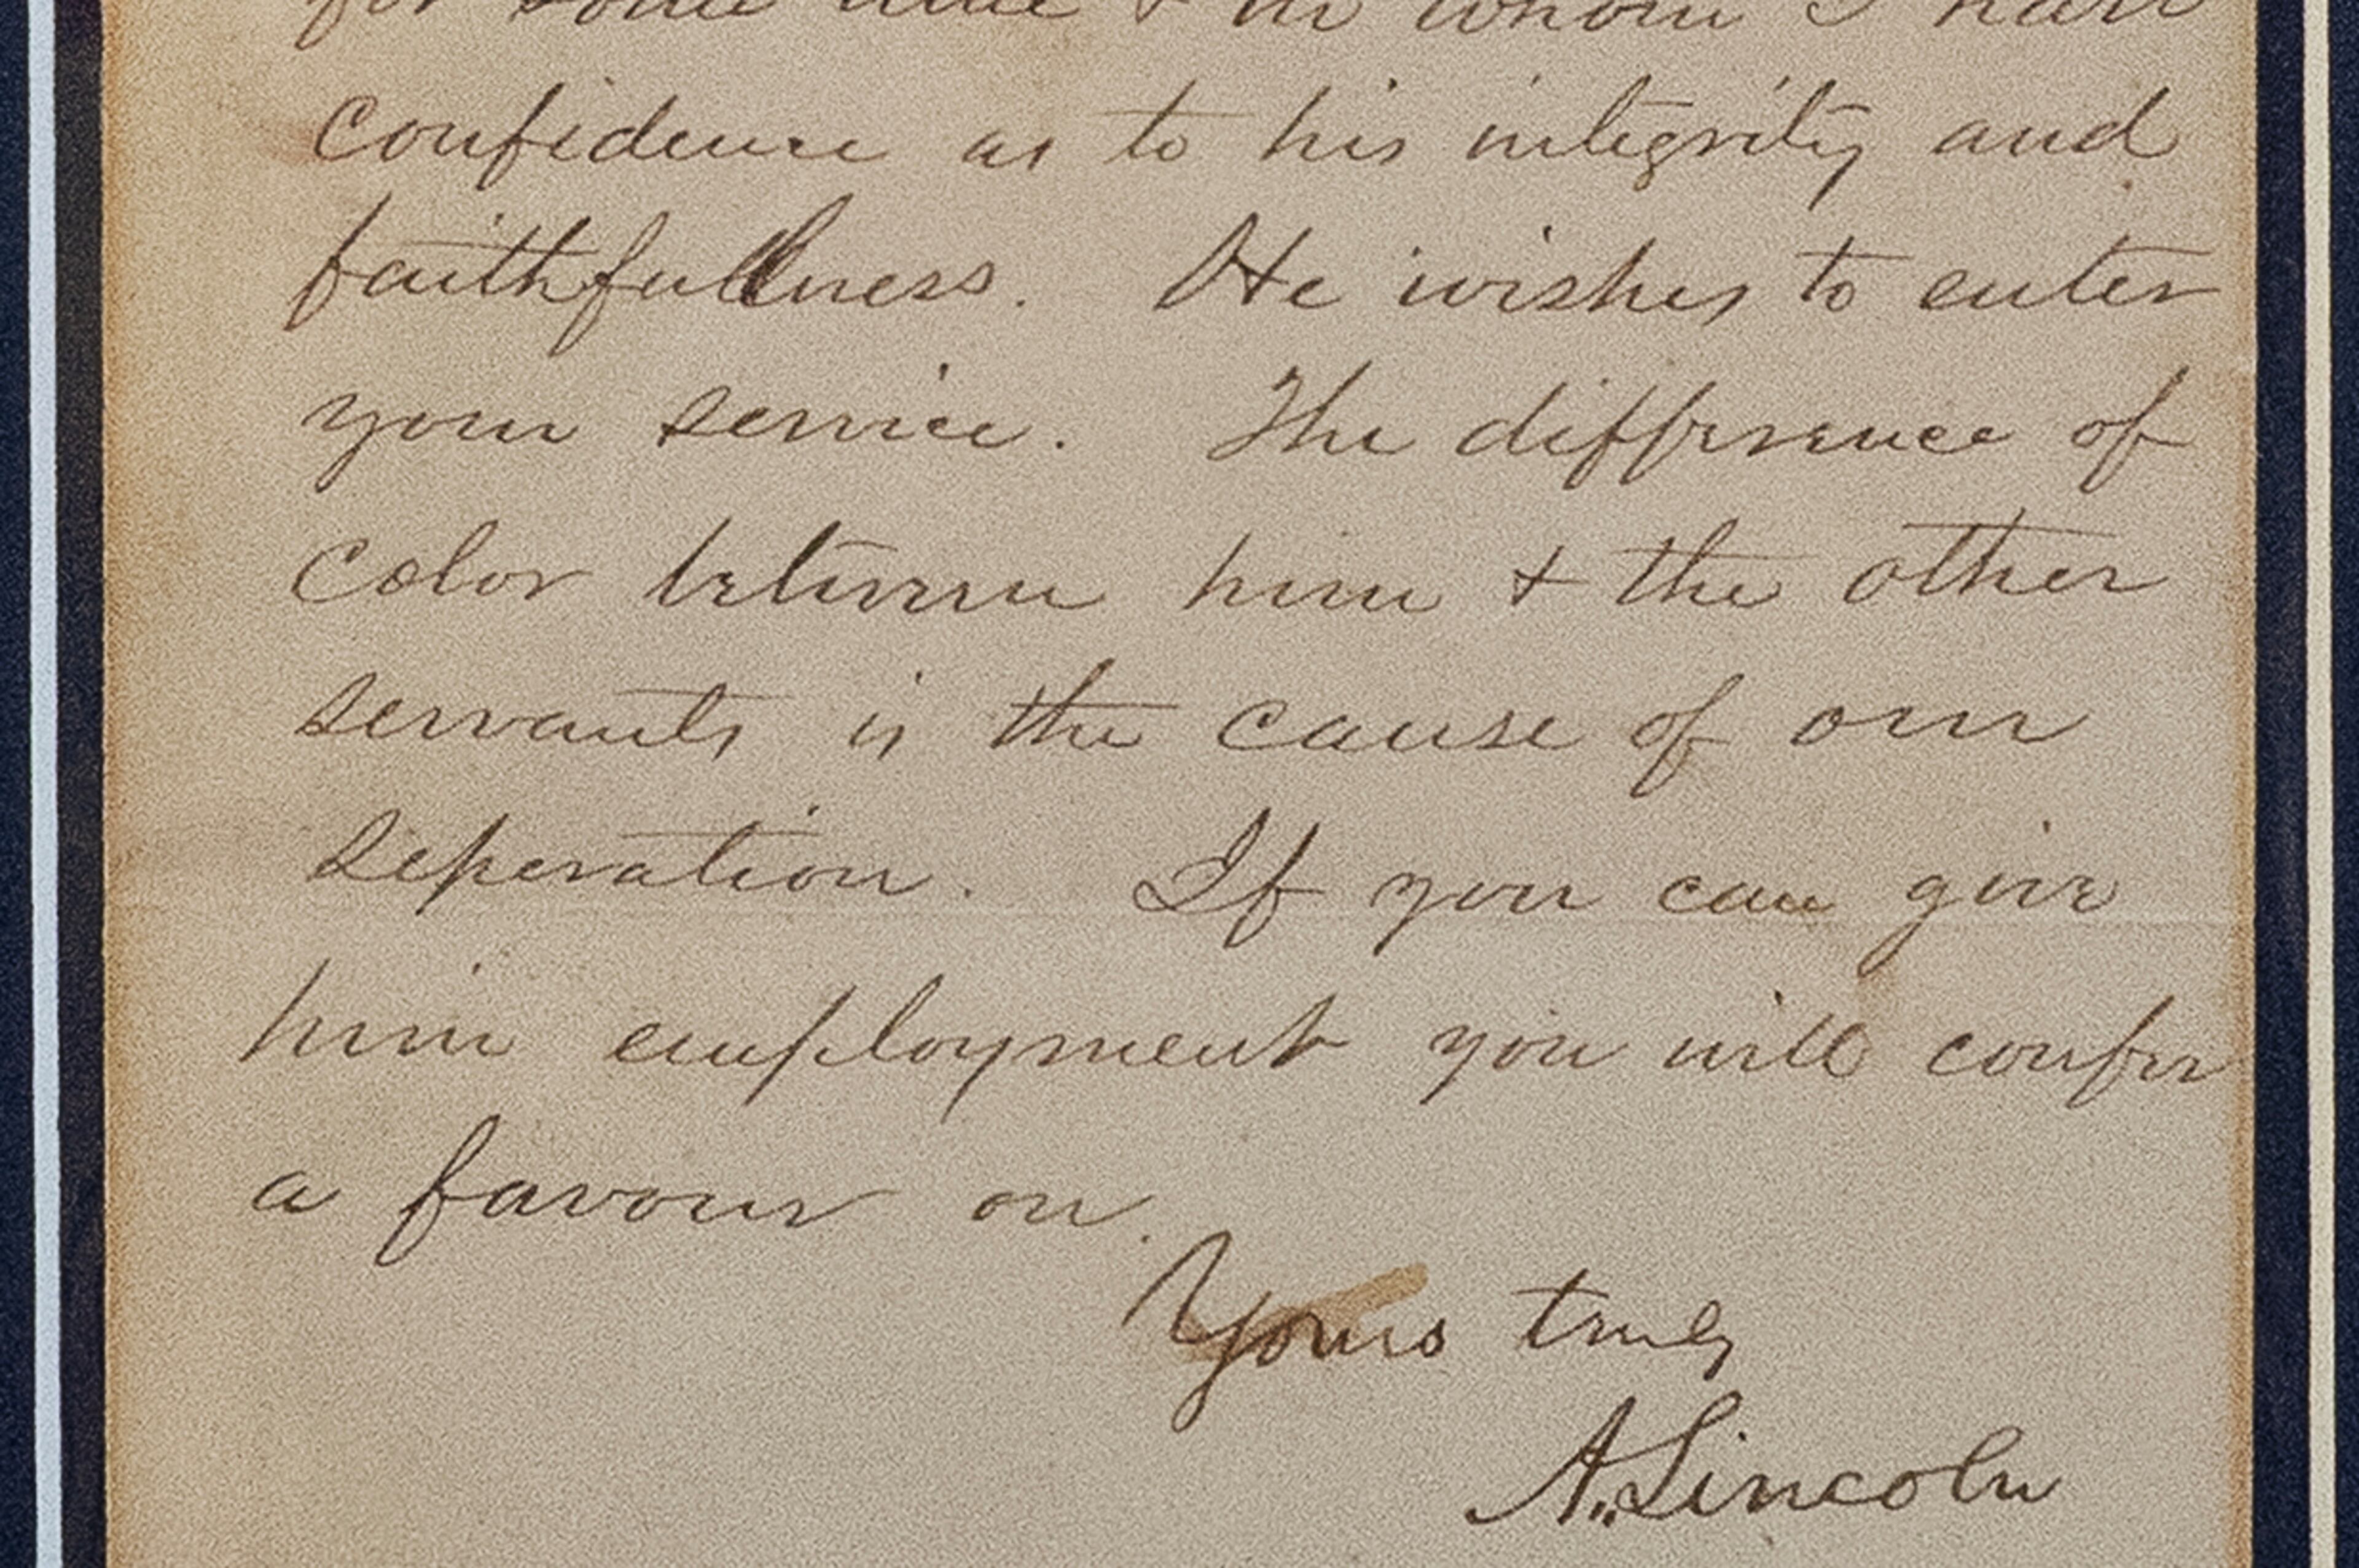 for some time & in whom I have
confidence as to his integrity and
faithfullness. He wishes to enter
your service. The difference of
color between him & the other
servants is the cause of our
seperation. If you can give
him employment you will confer
a favour on
Yours truly
A. Lincoln